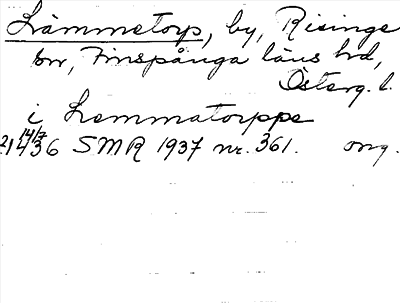 Lämmetorp, by, Risinge
sn, Finspånga läns hd,
Österg. l.
i Lemmatorppe
14/7
1436 SMR 1937 nr. 361. orig.